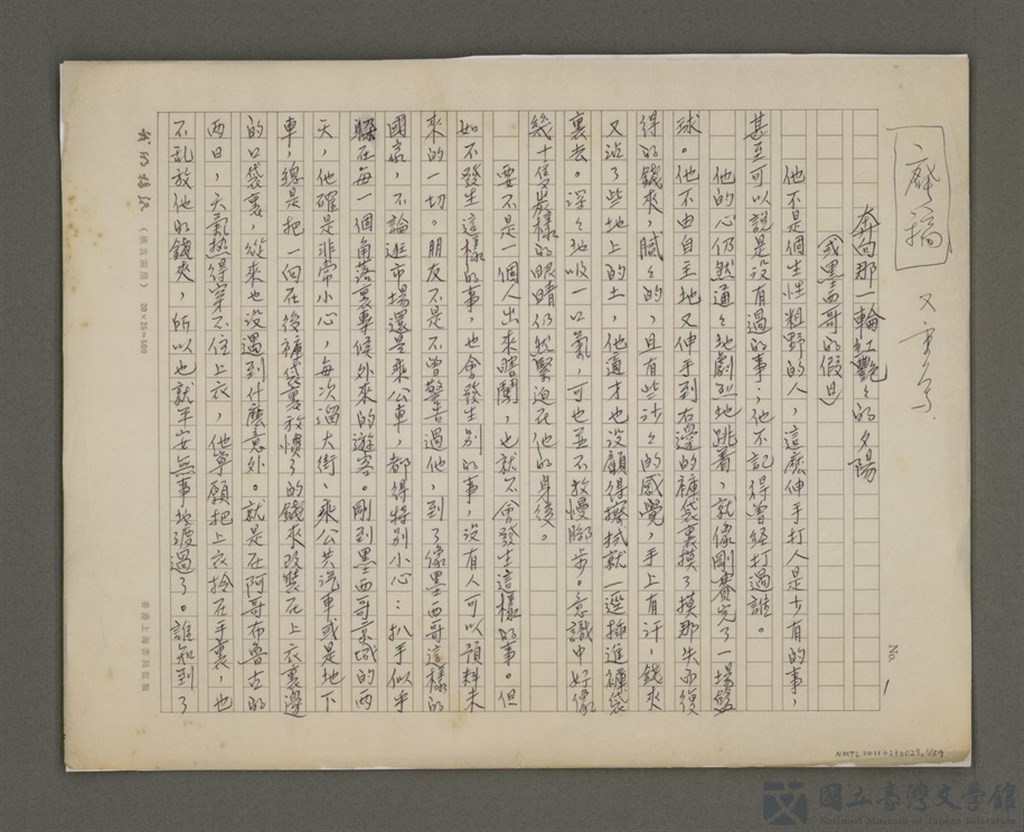 廢稿
又重寫.
奔向那一輪紅艷々的夕陽
(或墨西哥的假日)
他不是個生性粗野的人，這麽伸手打人是少有的事，
甚至可以說是没有過的事；他不記得曾經打過誰。
他的心仍然通々地劇烈地跳着，就像剛賽完了一場籃
球。他不由自主地又伸手到右邊的褲袋裏摸了摸那失而復
得的錢夾，膩々的，且有些沙々的感覺，手上有汗，錢夾
又沾了些地上的土，他適才也没顧得擦拭就一逕插進褲袋
裏去。深々地吸一口氣，可也並不放慢脚步。意識中好像
幾十隻炭樣的眼睛仍然緊迫在他的身後。
要不是一個人出來瞎闖，也就不會發生這樣的事。但
如不發生這樣的事，也會發生別的事，没有人可以預料未
來的一切。朋友不是不曾警告過他，到了像墨西哥這樣的
國家，不論逛市場還是乘公車，都得特別小心：扒手似乎
躲在每一個角落裏專候外來的遊客。剛到墨西哥京城的兩
天，他確是非常小心，每次遛大街、乘公共汽車或是地下
車，總是把一向在後褲袋裏放慣了的錢夾改裝在上衣裏邊
的口袋裏，從來也没遇到什麽意外。就是在阿哥布魯古的
兩日，天氣热得穿不住上衣，他寧願把上衣拎在手裏，也
不乱放他的錢夾，所以也就平安無事地渡過了。誰知到了
我的稿紙
(橫直兩用) 20×25=500
香港上海書局監製
No. 1
NMTL20110290029,1/59
國立臺灣文學館
National Museum of Taiwan Literature